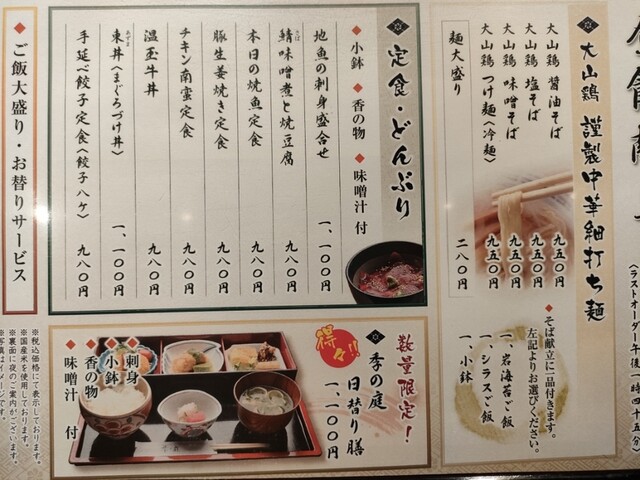 （ラストオーダー午後一時四十五分）
大山鶏 謹製中華細打ち麺
大山鶏 醤油そば 九五〇円
大山鶏 塩そば 九五〇円
大山鶏 味噌そば 九五〇円
大山鶏 つけ麺（冷麺） 九五〇円
麺大盛り 二八〇円
◆そば献立に一品付きます。
左記よりお選びください。
一、岩海苔ご飯
一、シラスご飯
一、小鉢
定食・どんぶり
◆小鉢 ◆香の物 ◆味噌汁 付
地魚の刺身盛合せ 一、一〇〇円
鯖味噌煮と焼豆腐 九八〇円
さば
本日の焼魚定食 九八〇円
豚生姜焼き定食 九八〇円
チキン南蛮定食 九八〇円
温玉牛丼 九八〇円
東丼（まぐろづけ丼） 一、一〇〇円
あずま
手延べ餃子定食（餃子八ケ） 九八〇円
◆ご飯大盛り・お替りサービス
数量限定！
得々!!
季の庭
日替り膳
一、一〇〇円
◆刺身
◆小鉢
◆香の物
◆味噌汁 付
※税込価格にて表示しております。
※国産米を使用しております。
※裏面に夜のご案内がございます。
※写真はイメージです。